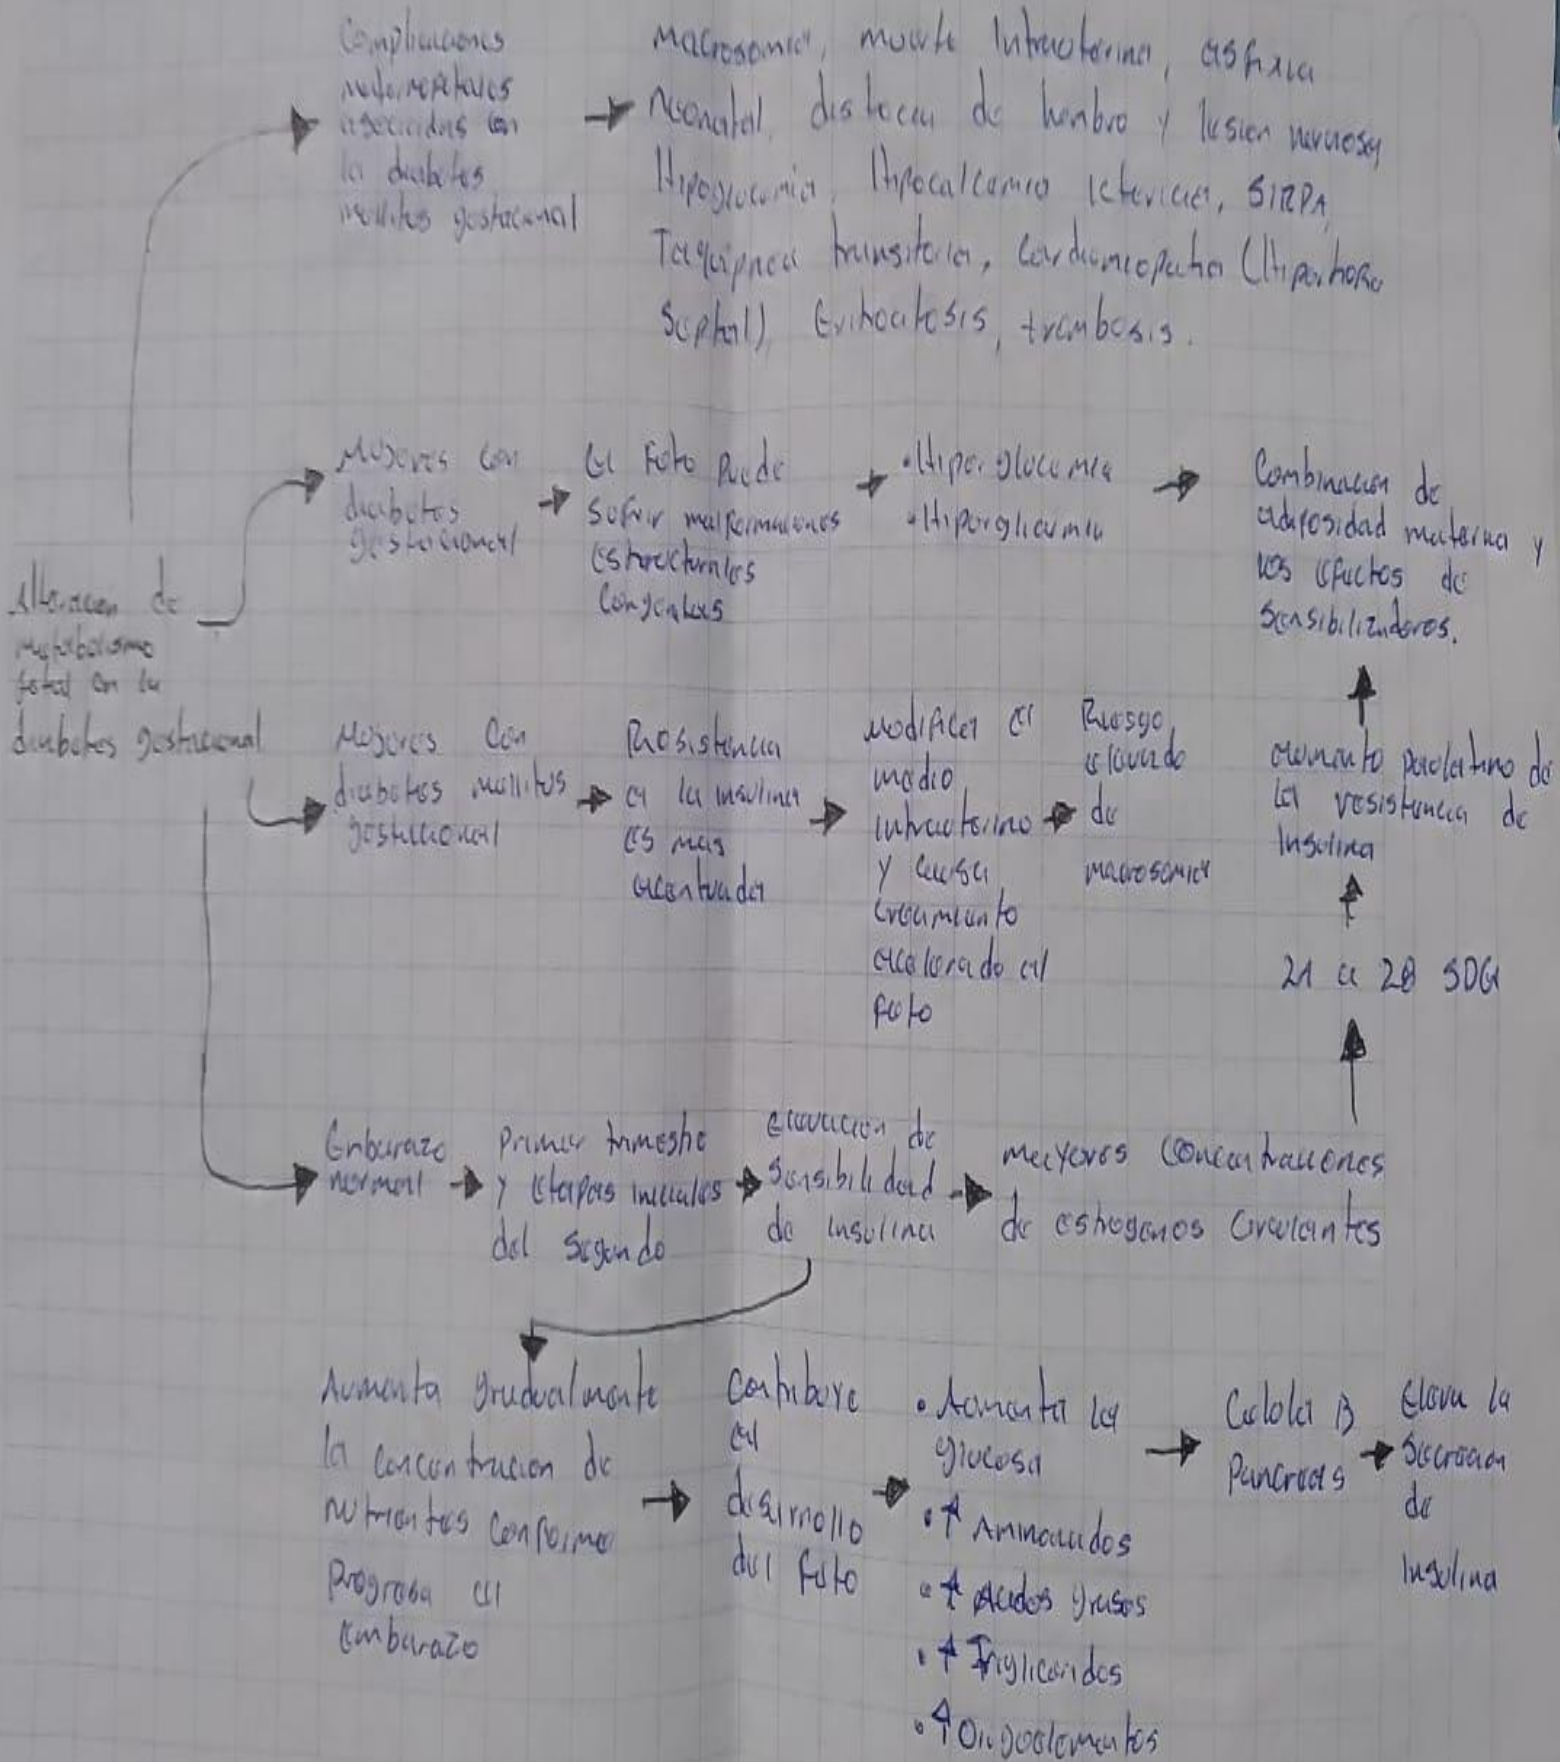 Complicaciones
maternofetales
asociadas con
la diabetes
mellitus gestacional
Macrosomia, muerte Intrauterina, asfixia
Neonatal, distocia de hombro y lesion nerviosa,
Hipoglucemia, Hipocalcemia Ictericia, SIRPA,
Taquipnea transitoria, Cardiomiopatia (Hipertrofia
Septal), Eritrocitosis, trombosis.
Alteracion de
metabolismo
fetal en la
diabetes gestacional
Mujeres con
diabetes
gestacional
El feto Puede
Sufrir malformaciones
Estructurales
Congenitas
• Hiperglucemia
• Hiperglicemia
Combinacion de
adiposidad materna y
los efectos de
Sensibilizadores.
Mujeres Con
diabetes mellitus
gestacional
Resistencia
a la insulina
es mas
acentuada
Modifica el
medio
intrauterino
y causa
Crecimiento
acelerado al
feto
Riesgo
elevado
de
macrosomia
aumento paulatino de
la resistencia de
Insulina
21 a 28 SDG
Embarazo
normal
Primer trimestre
y Etapas iniciales
del Segundo
Elevacion de
Sensibilidad
de insulina
Mayores Concentraciones
de estrogenos Circulantes
Aumenta gradualmente
la concentracion de
nutrientes conforme
Progresa el
embarazo
Contribuye
al
desarrollo
del feto
• Aumenta la
glucosa
• ↑ Aminoacidos
• ↑ Acidos grasos
• ↑ Trigliceridos
• ↑ Oligoelementos
Celula B
Pancreas
Eleva la
Secrecion
de
Insulina